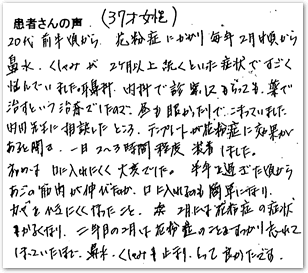 患者さんの声 (37才女性)
20代前半頃から、花粉症にかかり毎年2月頃から
鼻水、くしゃみが2ヶ月以上続くといった症状ですごく
悩んでいました。耳鼻科、内科で診察にもらっても、薬で
治すという治療でしたので、昼も眠かったりで、こまっていました
田川先生に相談したところ、テンプレートが花粉症に効果が
あると聞き、一日2〜3時間程度、装着しました。
初めは口に入れにくく大変でした。半年を過ぎた頃から
あごの筋肉が伸びたのか、口に入れるのも簡単になり、
カゼをひきにくくなったこと、又、2月には花粉症の症状
も軽くなり、二年目の2月は花粉症のことをすっかり忘れて
しまっていたほど、鼻水、くしゃみも止まり、とっても良かったです。